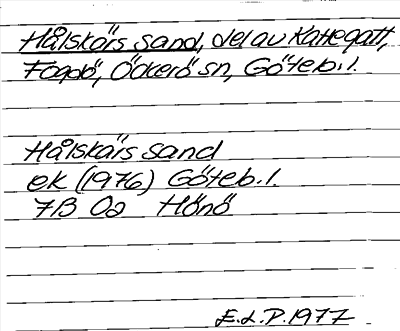 Hålskärs sand, del av Kattegatt,
Fogdö, Öckerö sn, Göteb. l.
Hålskärs sand
ek (1976) Göteb. l.
7B 0a Hönö
E.L.P. 1977